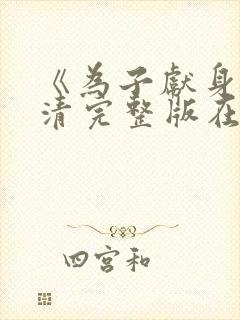 《为子献身
清完整版在
四宫和